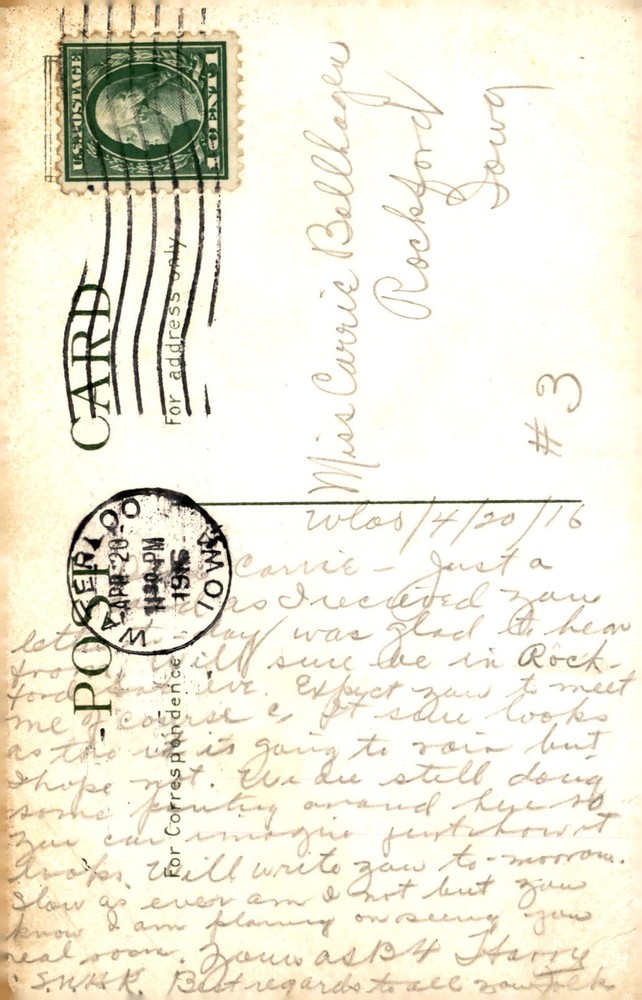 U.S. POSTAGE
1 CENT 1
POST CARD
For address only
Miss Carrie Bollhagen
Rockford
Iowa
#3
WATERLOO
APR 20
11 30 PM
1916
IOWA
For Correspondence
Wloo/4/20/16
Carrie - Just a
as I recieved your
letter to-day was glad to hear
from will sure be in Rock-
ford eve. Expect you to meet
me of course. It sure looks
as tho it is going to rain but
I hope not. We are still doing
some painting around here so
you can imagine just how it
looks. Will write you to-morrow.
Slow as ever am I not but you
know I am planing on seeing you
real soon. Yours as B4 Harry
S.W.H.K. Best regards to all your folks